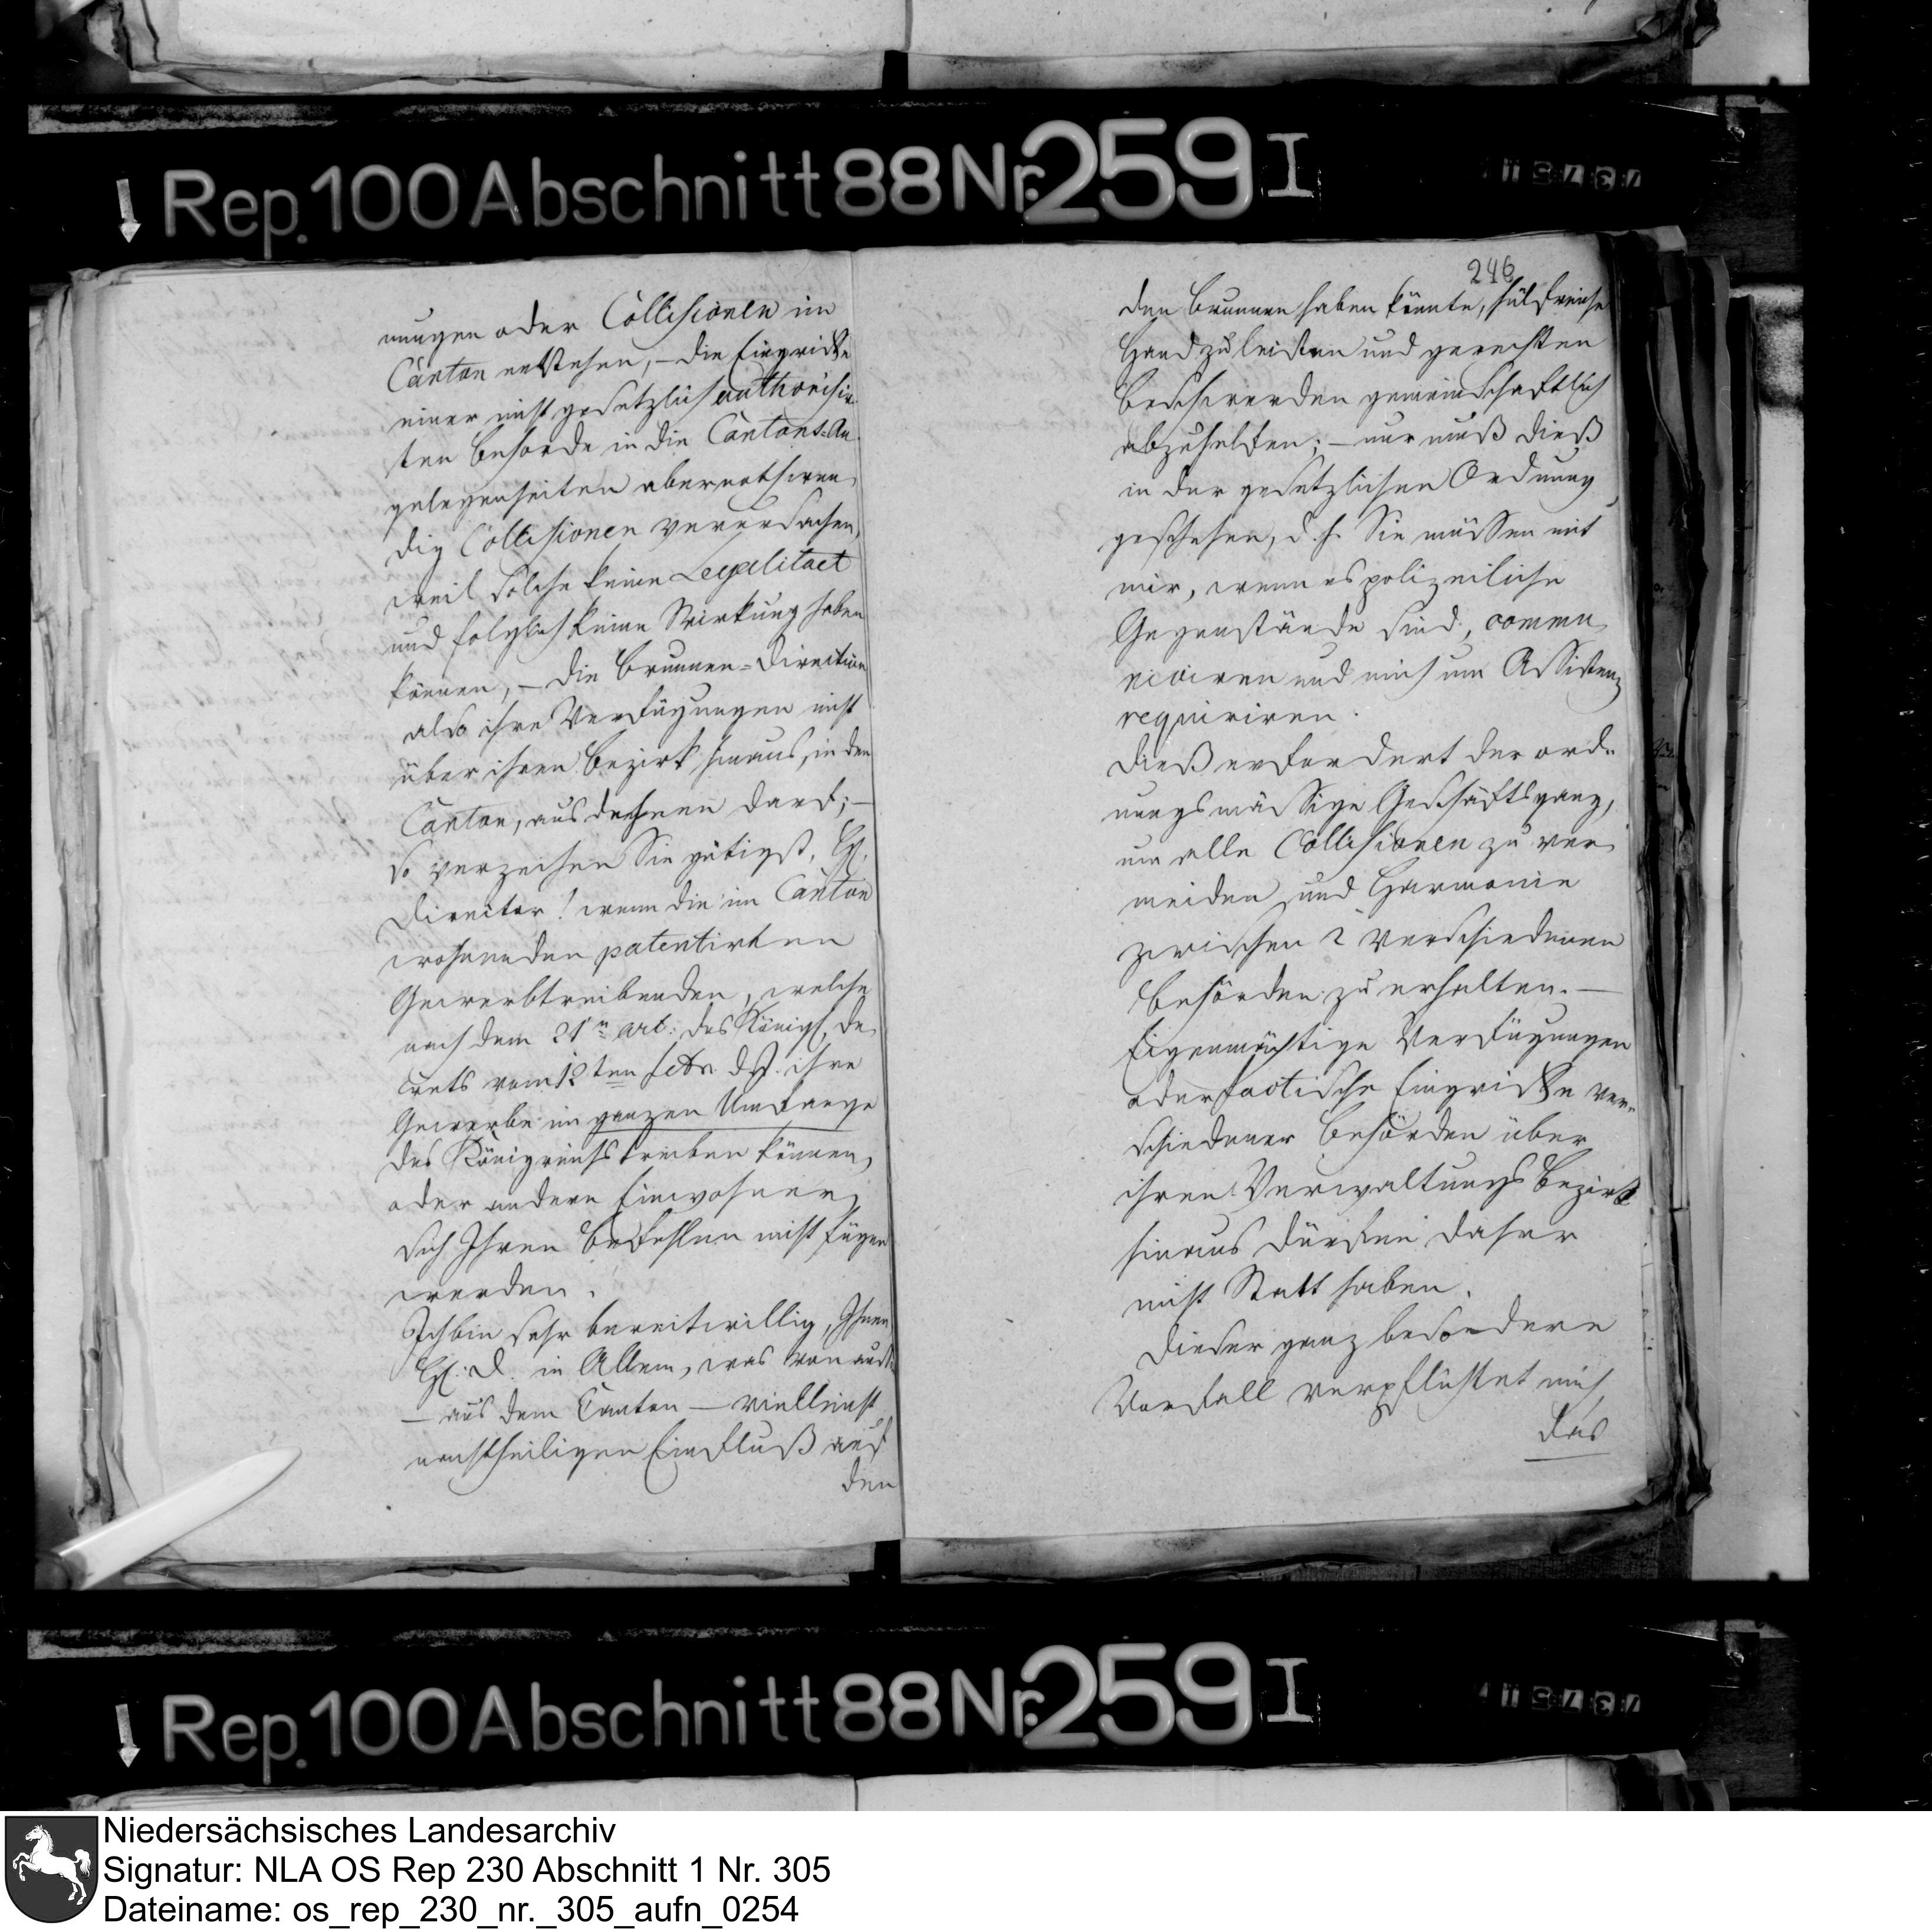 Rep. 100 Abschnitt 88 Nr. 259 I
nungen oder Collisionen im
Canton entstehen, – die Eingriffe
einer nicht gesetzlich authorisir-
ten Behörde in die Cantons-An-
gelegenheiten aber nothwen-
dig Collisionen verursachen,
weil solche keine Legalitaet
und folglich keine Wirkung haben
können, – die Brunnen-Direction
also ihre Verfügungen nicht
über ihren Bezirk hinaus, in den
Canton, ausdehnen darf; –
so verzeihen Sie gütigst, H.
Director! wenn die im Canton
wohnenden patentirten
Gewerbtreibenden, welche
nach dem 21n art: des Königl. De-
crets vom 12ten Febr. d. J. ihre
Gewerbe im ganzen Umfange
des Königreichs treiben können,
oder andere Einwohner,
sich Ihren Befehlen nicht fügen
werden.
Ich bin sehr bereitwillig, Ihnen
H. D. in Allem, was von auß.
– aus dem Canton – vielleicht
nachtheiligen Einfluß auf
den
246
den Brunnen haben könnte, hülfreiche
Hand zu leisten und gerechten
Beschwerden gemeinschaftlich
abzuhelfen; – nur muß dieß
in der gesetzlichen Ordnung
geschehen, d. h. Sie müssen mit
mir, wenn es polizeiliche
Gegenstände sind, commu-
niciren und mich um Assistenz
requiriren.
Dieß erfordert der ord-
nungsmässige Geschäftsgang,
um alle Collisionen zu ver-
meiden und Harmonie
zwischen 2 verschiedenen
Behörden zu erhalten. –
Eigenmächtige Verfügungen
oder factische Eingriffe ver-
schiedener Behörden über
ihren Verwaltungs Bezirk
hinaus dürfen daher
nicht Statt haben.
Dieser ganz besondere
Vorfall verpflichtet mich
das
Rep. 100 Abschnitt 88 Nr. 259 I
Niedersächsisches Landesarchiv
Signatur: NLA OS Rep 230 Abschnitt 1 Nr. 305
Dateiname: os_rep_230_nr._305_aufn_0254